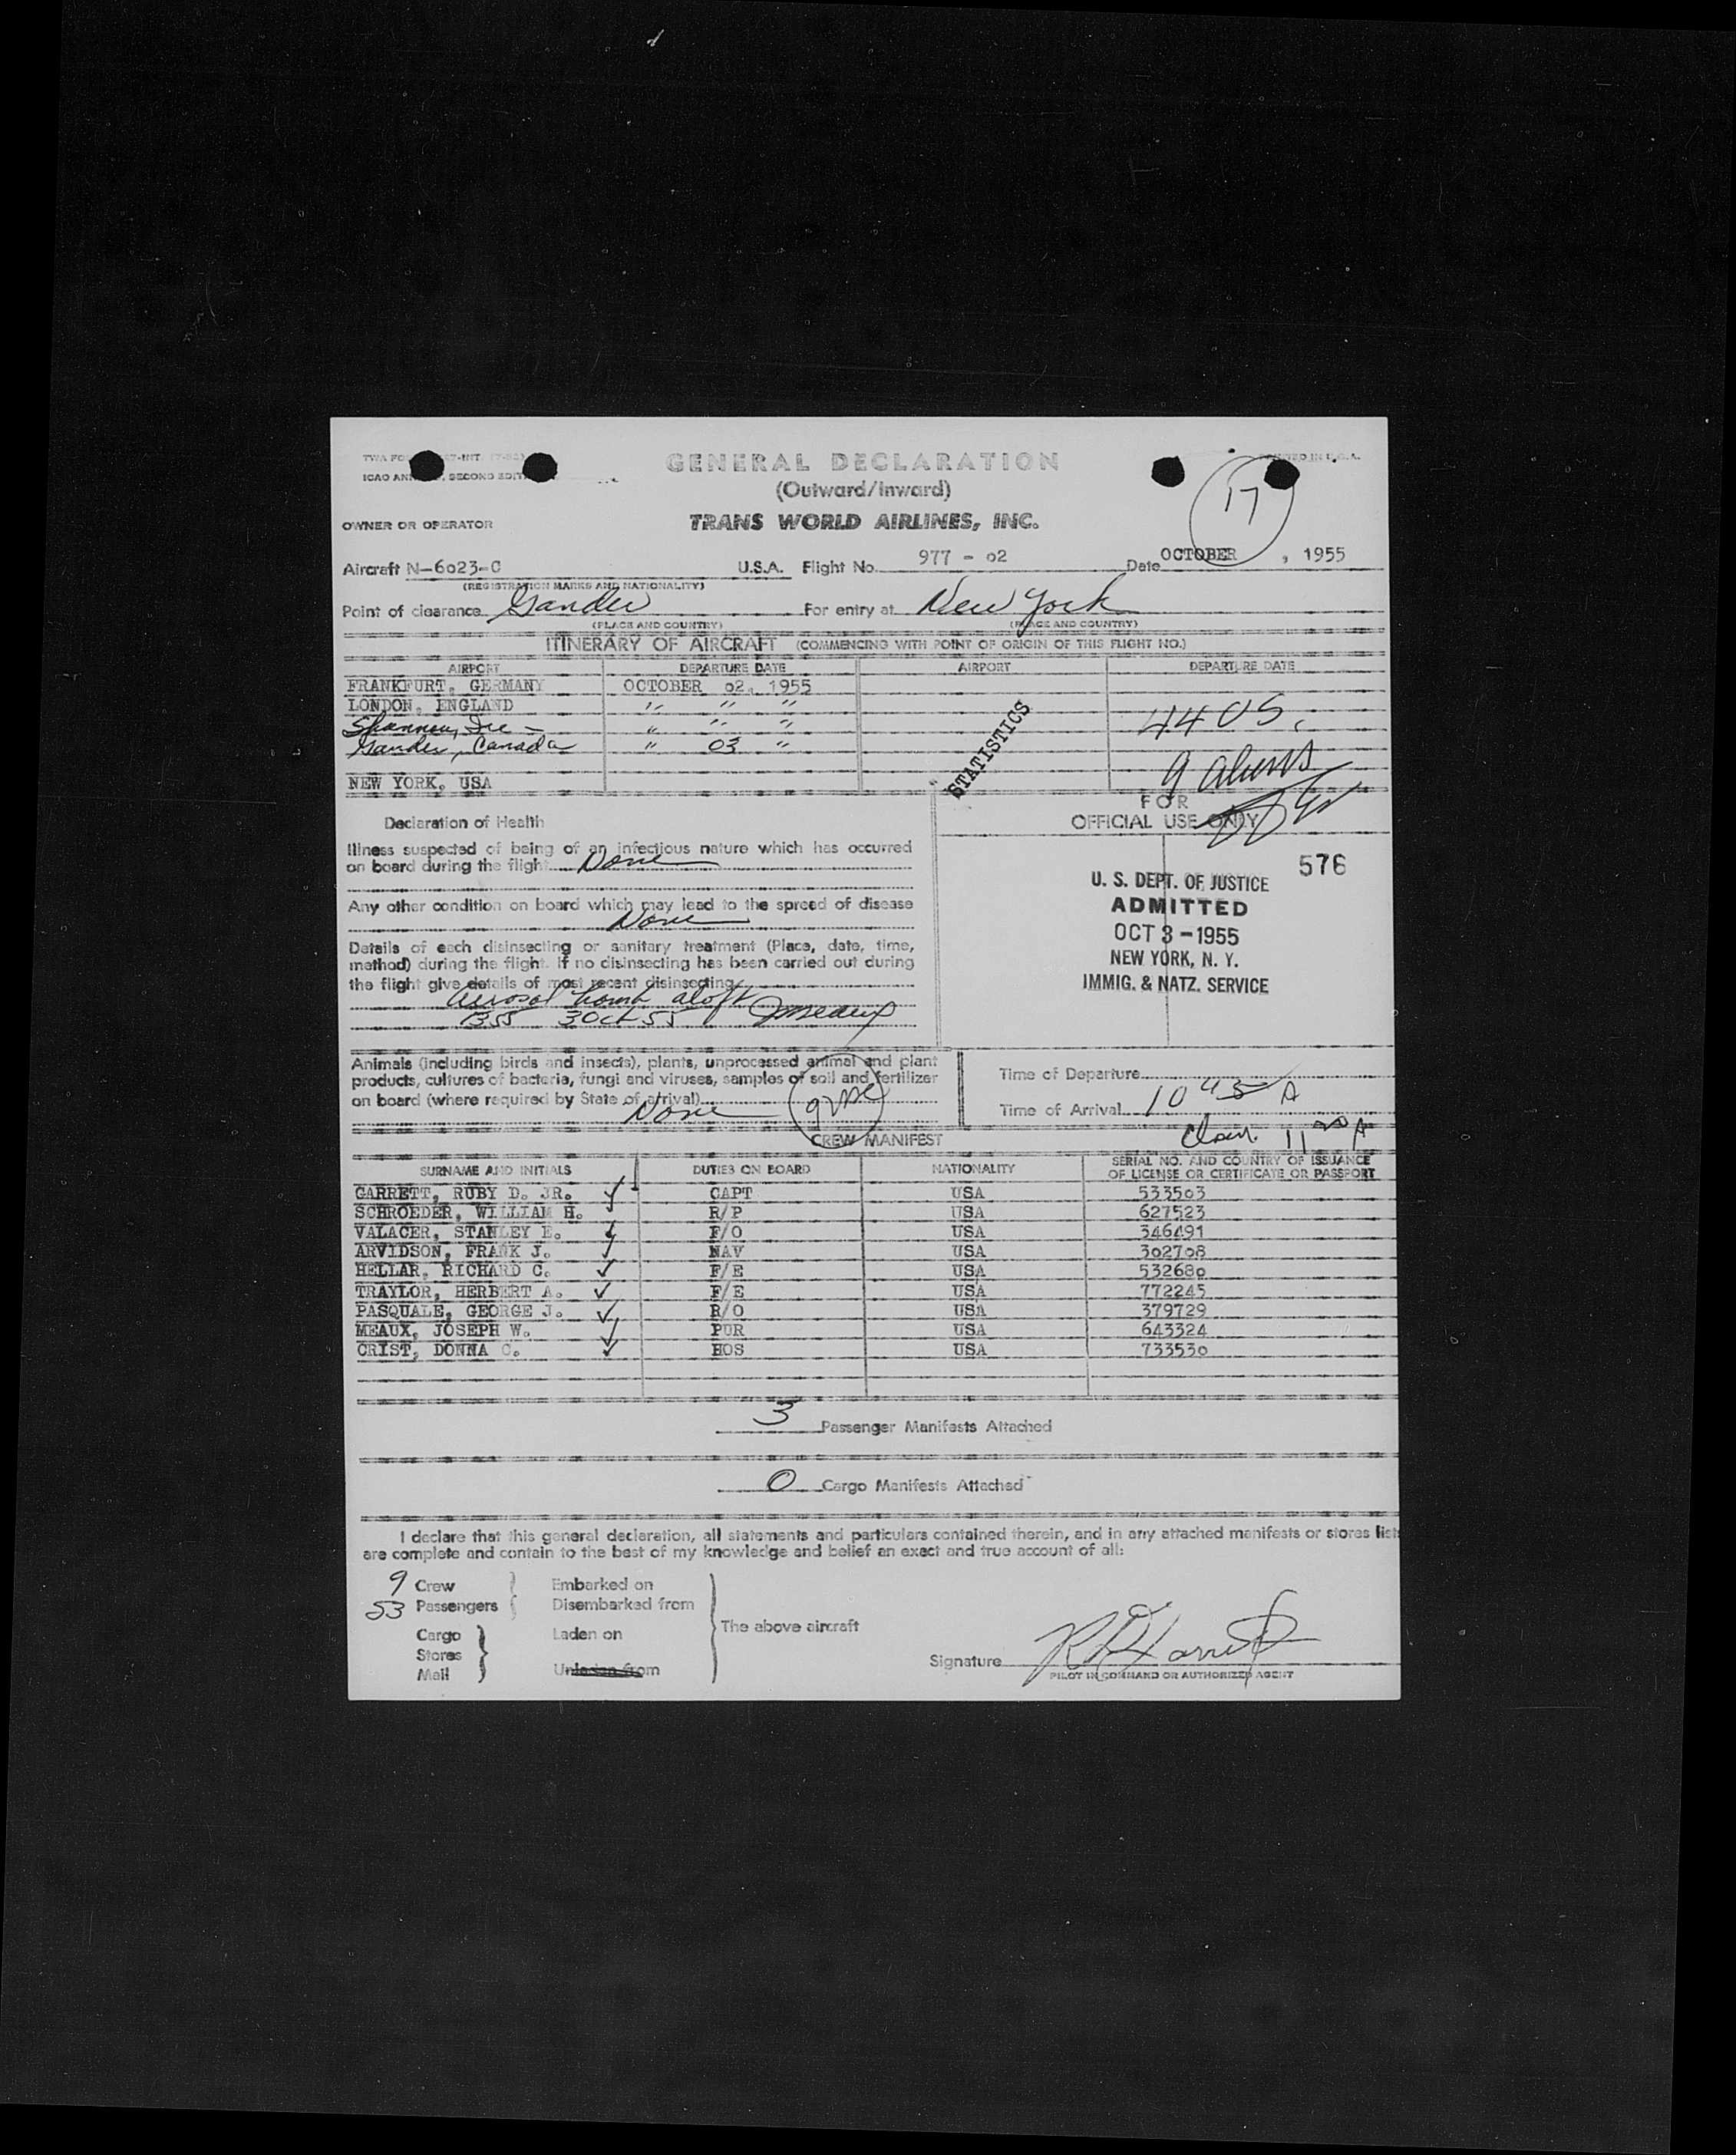 TWA FO
GENERAL DECLARATION
ICAO AN SECOND EDIT
(Outward/Inward)
17
OWNER OR OPERATOR TRANS WORLD AIRLINES, INC.
Aircraft N-6023-C U.S.A. Flight No. 977 - 02 Date OCTOBER , 1955
(REGISTRATION MARKS AND NATIONALITY)
Point of clearance Gander For entry at New York
(PLACE AND COUNTRY) (PLACE AND COUNTRY)
ITINERARY OF AIRCRAFT (COMMENCING WITH POINT OF ORIGIN OF THIS FLIGHT NO.)
AIRPORT DEPARTURE DATE AIRPORT DEPARTURE DATE
FRANKFURT, GERMANY OCTOBER 02, 1955
LONDON, ENGLAND " " "
Shannon, Ire " " "
Gander, Canada " 03 "
NEW YORK, USA
STATISTICS
44 US.
9 aliens
FOR
OFFICIAL USE ONLY
Declaration of Health
Illness suspected of being of an infectious nature which has occurred
on board during the flight None
Any other condition on board which may lead to the spread of disease
None
Details of each disinsecting or sanitary treatment (Place, date, time,
method) during the flight. If no disinsecting has been carried out during
the flight give details of most recent disinsecting
Aerosol bomb aloft
1355 3 Oct 55 JMeaux
576
U. S. DEPT. OF JUSTICE
ADMITTED
OCT 3 - 1955
NEW YORK, N. Y.
IMMIG. & NATZ. SERVICE
Animals (including birds and insects), plants, unprocessed animal and plant
products, cultures of bacteria, fungi and viruses, samples of soil and fertilizer
on board (where required by State of arrival) None
Time of Departure
Time of Arrival 10 45 A
11 20 A
CREW MANIFEST
SURNAME AND INITIALS DUTIES ON BOARD NATIONALITY SERIAL NO. AND COUNTRY OF ISSUANCE
OF LICENSE OR CERTIFICATE OR PASSPORT
GARRETT, RUBY D. JR. CAPT USA 533503
SCHROEDER, WILLIAM H. R/P USA 627523
VALACER, STANLEY E. F/O USA 346491
ARVIDSON, FRANK J. NAV USA 302708
HELLAR, RICHARD C. F/E USA 532680
TRAYLOR, HERBERT A. F/E USA 772245
PASQUALE, GEORGE J. R/O USA 379729
MEAUX, JOSEPH W. PUR USA 643324
CRIST, DONNA C. HOS USA 733530
3 Passenger Manifests Attached
0 Cargo Manifests Attached
I declare that this general declaration, all statements and particulars contained therein, and in any attached manifests or stores list
are complete and contain to the best of my knowledge and belief an exact and true account of all:
9 Crew Embarked on
53 Passengers Disembarked from
The above aircraft
Cargo Laden on
Stores
Mail Unladen from
Signature R D Garrett
PILOT IN COMMAND OR AUTHORIZED AGENT